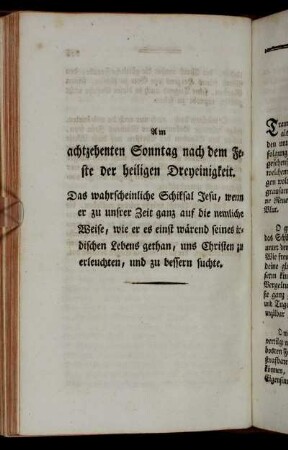 Am
achtzehenten Sonntag nach dem Fe-
ste der heiligen Dreyeinigkeit.
Das wahrscheinliche Schiksal Jesu, wenn
er zu unsrer Zeit ganz auf die nemliche
Weise, wie er es einst wärend seines ir-
dischen Lebens gethan, uns Christen zu
erleuchten, und zu bessern suchte.